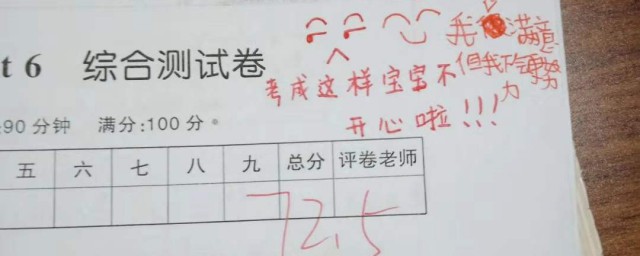 t 6 综合测试卷
我满意
但我不会努力
考成这样宝宝不
开心啦!!!
:90 分钟 满分:100 分。
五 六 七 八 九 总分 评卷老师
72.5